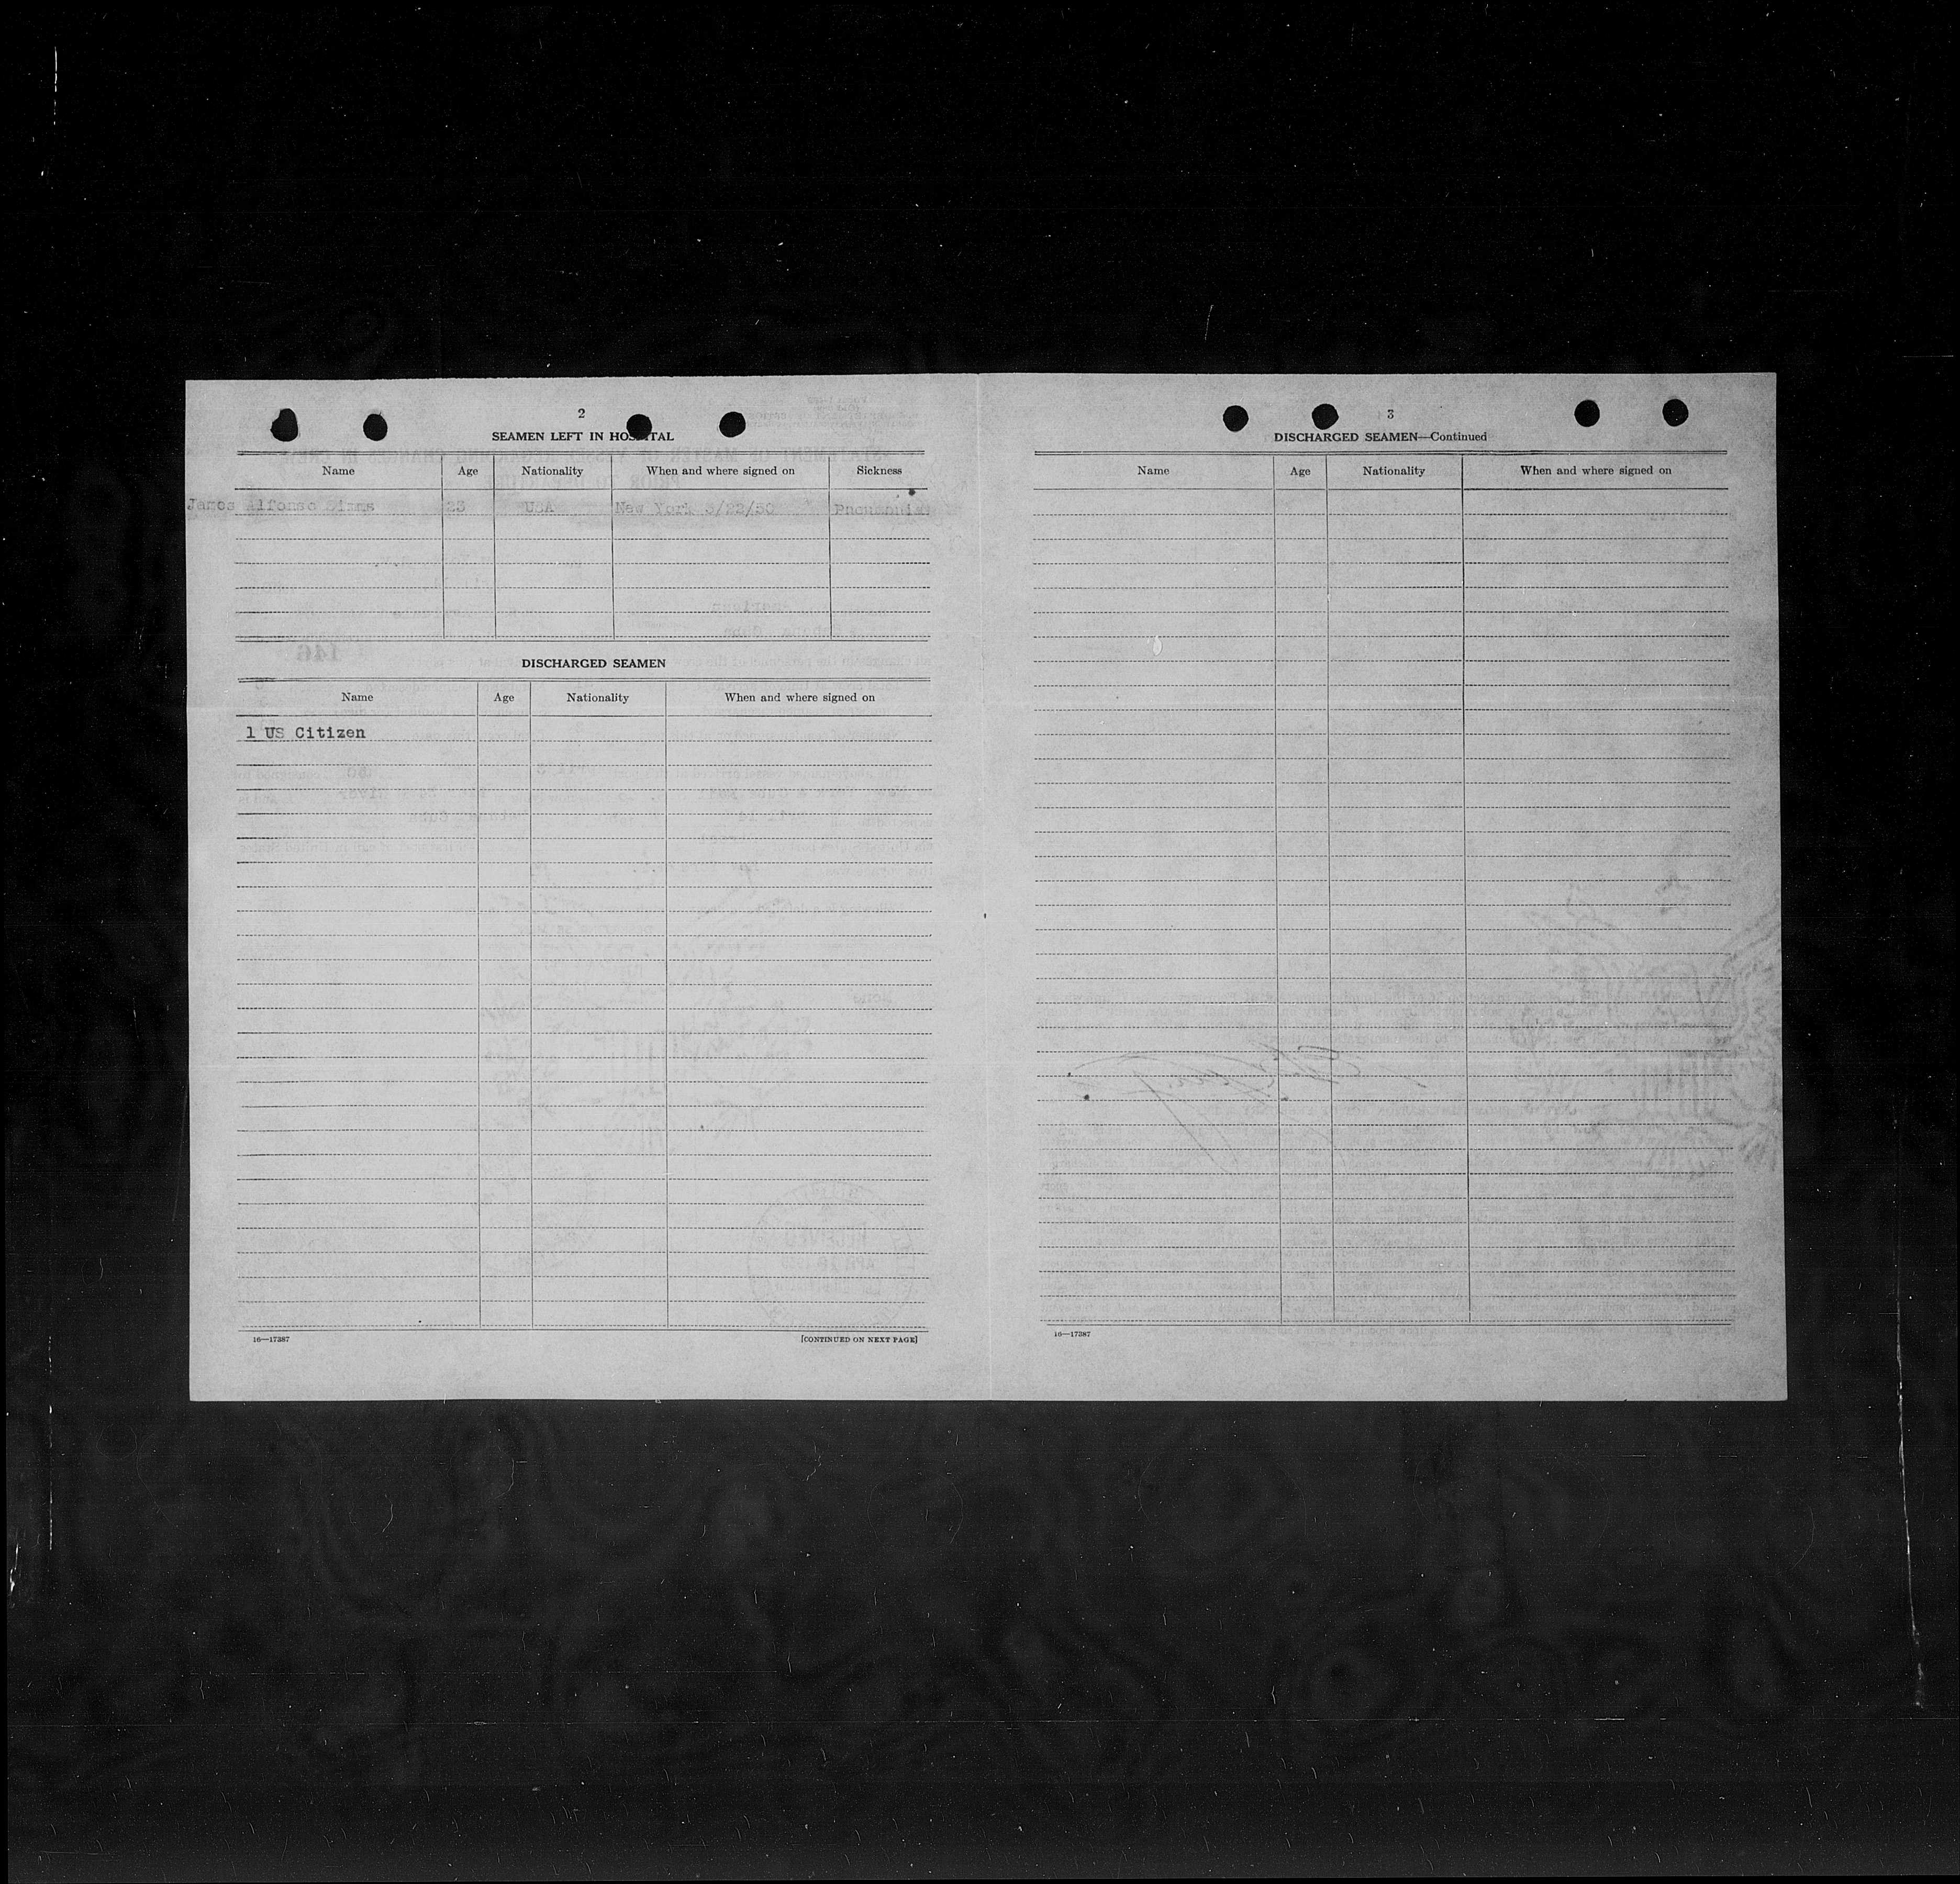 2
SEAMEN LEFT IN HOSPITAL
Name Age Nationality When and where signed on Sickness
James Alfonso Simms 23 USA New York 3/22/50 Pneumonia
DISCHARGED SEAMEN
Name Age Nationality When and where signed on
1 US Citizen
16—17387 [CONTINUED ON NEXT PAGE]
3
DISCHARGED SEAMEN—Continued
Name Age Nationality When and where signed on
16—17387